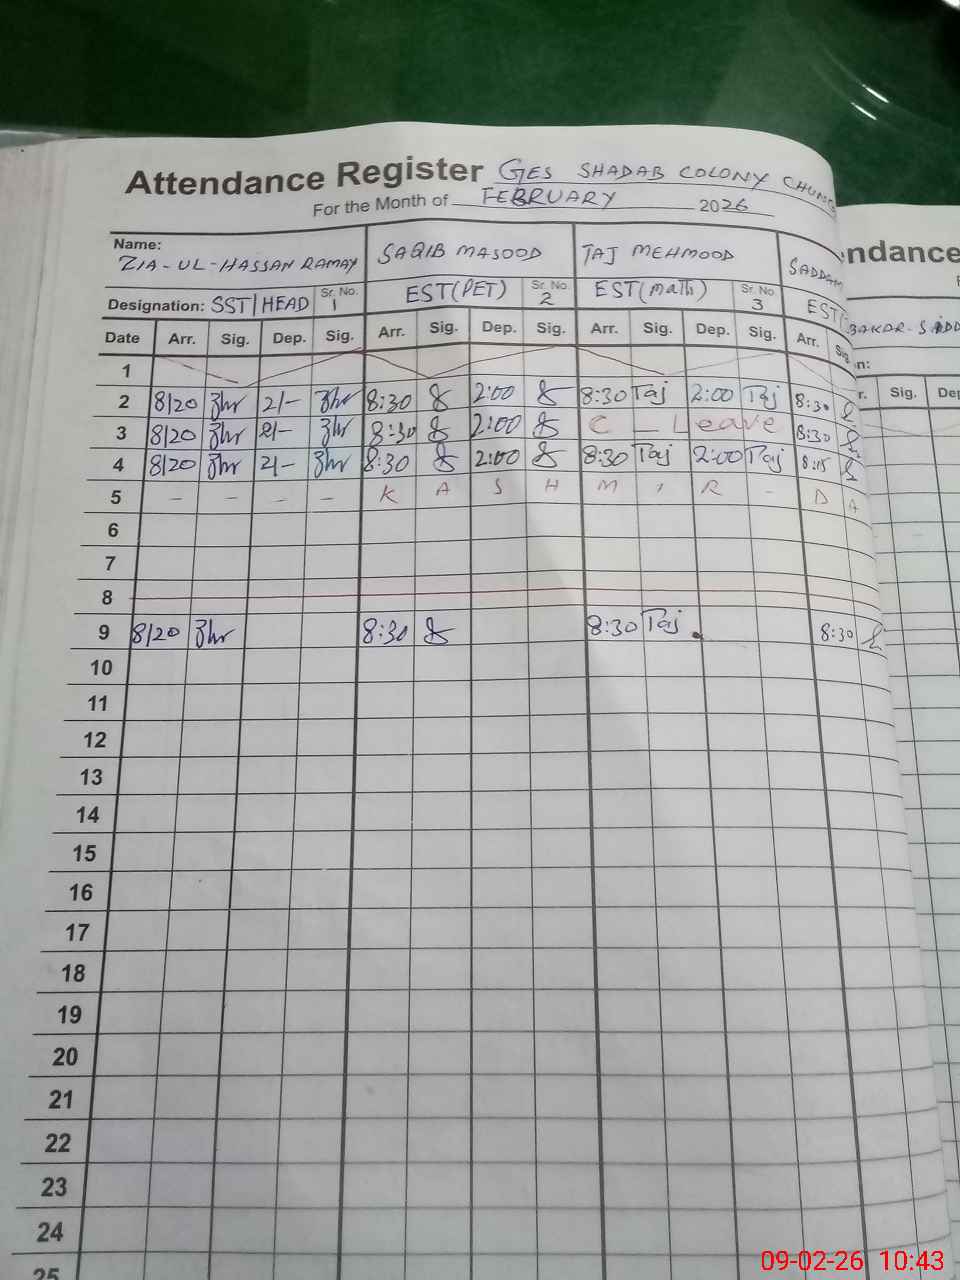 Attendance Register GES SHADAB COLONY CHUNG
For the Month of FEBRUARY 2026
Name: ZIA-UL-HASSAN RAMAY SAQIB MASOOD TAJ MEHMOOD SADDAM
Designation: SST/HEAD Sr. No. 1 EST(PET) Sr. No. 2 EST(Math) Sr. No. 3 EST
Date Arr. Sig. Dep. Sig. Arr. Sig. Dep. Sig. Arr. Sig. Dep. Sig. Arr. Sig.
1
2 8/20 2/- 8:30 2:00 8:30 Taj 2:00 Taj 8:30
3 8/20 2/- 8:30 2:00 C - Leave 8:30
4 8/20 2/- 8:30 2:00 8:30 Taj 2:00 Taj 8:15
5 - - - - K A S H M I R - D A
6
7
8
9 8/20 8:30 8:30 Taj 8:30
10
11
12
13
14
15
16
17
18
19
20
21
22
23
24
25
ndance
BAKAR-SIDD
n:
r. Sig. Dep
09-02-26 10:43